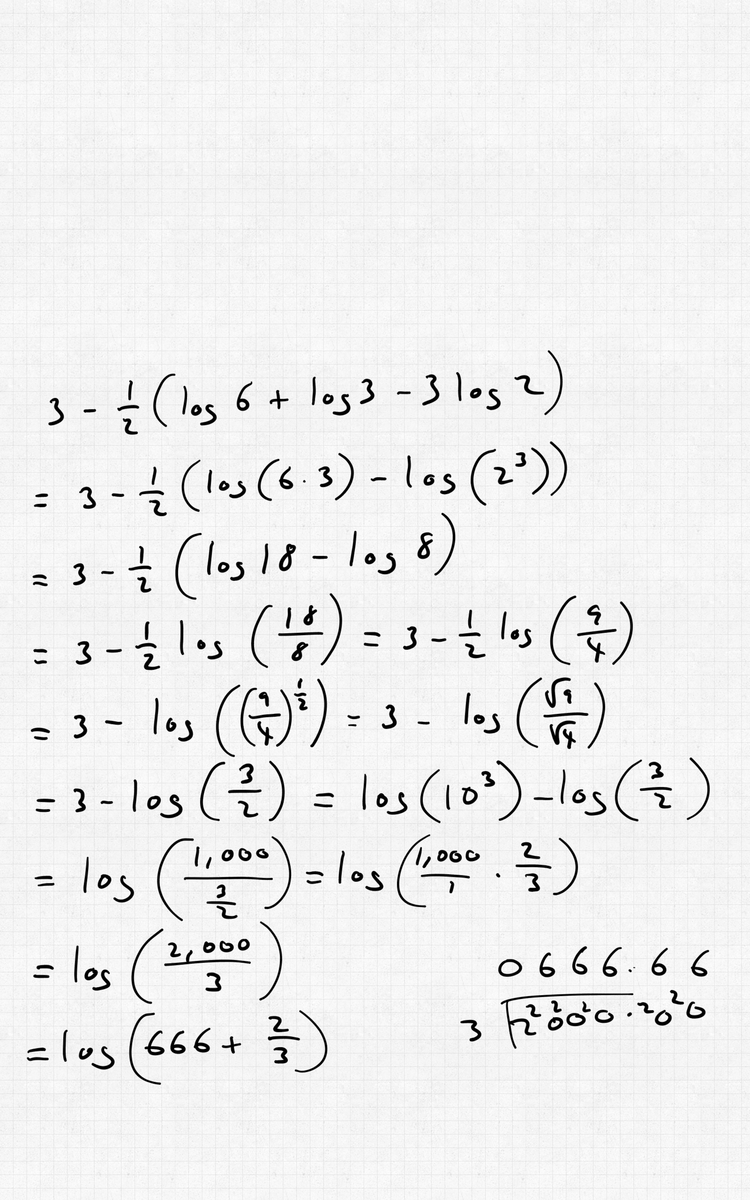 3 - 1/2 (log 6 + log 3 - 3 log 2)
= 3 - 1/2 (log(6·3) - log(2³))
= 3 - 1/2 (log 18 - log 8)
= 3 - 1/2 log (18/8) = 3 - 1/2 log (9/4)
= 3 - log ((9/4)^(1/2)) = 3 - log (√9/√4)
= 3 - log (3/2) = log(10³) - log(3/2)
= log (1,000/(3/2)) = log (1,000/1 · 2/3)
= log (2,000/3)
= log (666 + 2/3)
0 6 6 6 . 6 6
3 2 ²0 ²0 ²0 . ²0 ²0